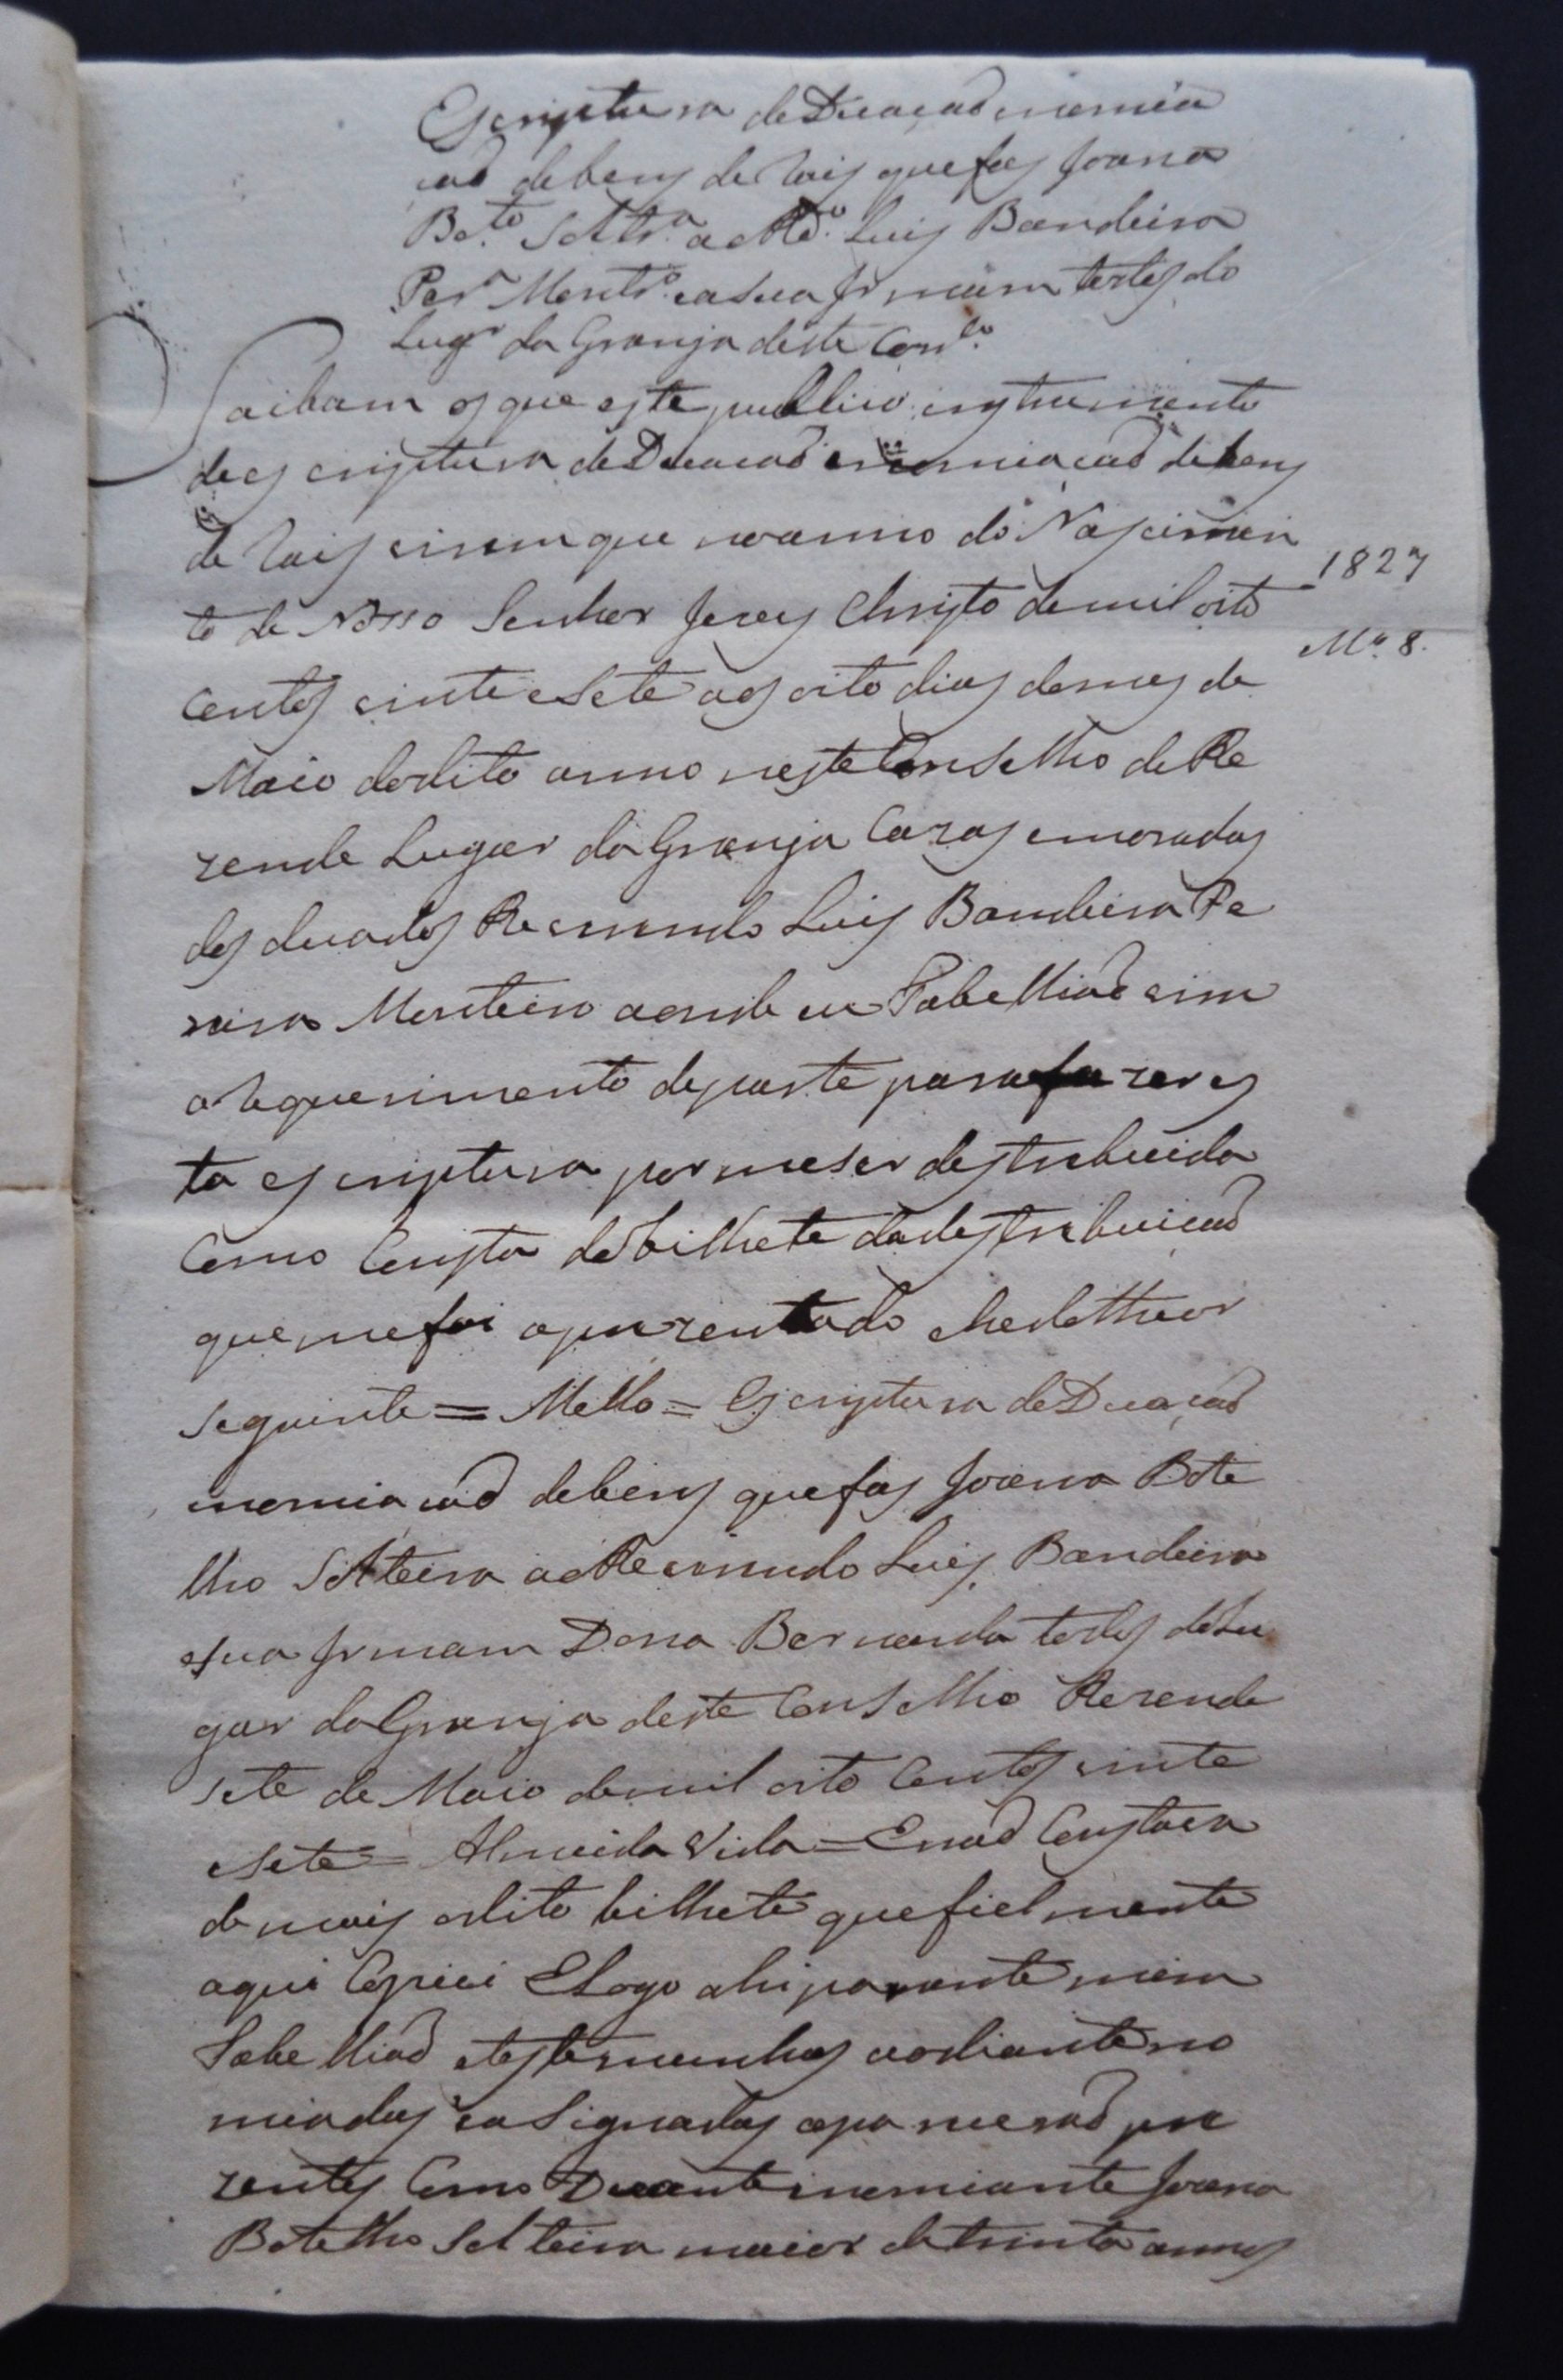 Escriptura de Duaçaõ enomia
çaõ debens de rais que fas Joana
Bo.to Soltr.a a oRd.o Luis Bandeira
Per.a Montr.o e asua Irmam todos do
Lug.r da Granja deste Con.lo
Saibam os que este publico instrumento
de escriptura de Duaçaõ enomiacaõ debens
de rais virem que no anno do Nascimen
to de Nosso Senhor Jezus Christo demil oito
1827
centos vinte esete aos oito dias do mes de
M.o 8.
Maio do dito anno neste Conselho de Re
zende Lugar da Granja Cazas emoradas
dos duados Reverendo Luis Bandeira Pe
reira Monteiro aonde eu Tabelliaõ vim
a requerimento departe para fazer es
ta escriptura por me ser destribuida
Como Consta do bilhete da destribuicaõ
que me foi aprezentado e he do theor
seguinte = Mello = Escriptura de Duaçaõ
enomiacaõ debens que fas Joana Bote
lho Solteira a oReverendo Luis Bandeira
esua Irmam Dona Bernarda todos do Lu
gar da Granja deste Conselho Rezende
sete de Maio demil oito Centos vinte
esete = Almeida Vida = Enaõ Constava
de mais odito bilhete que fielmente
aqui Copiei ELogo ahi parante mim
Tabelliaõ etestemunhas aodiante no
miadas easignadas apareceraõ pre
zentes Como Duante enomiante Joana
Botelho Solteira maior de trinta annos